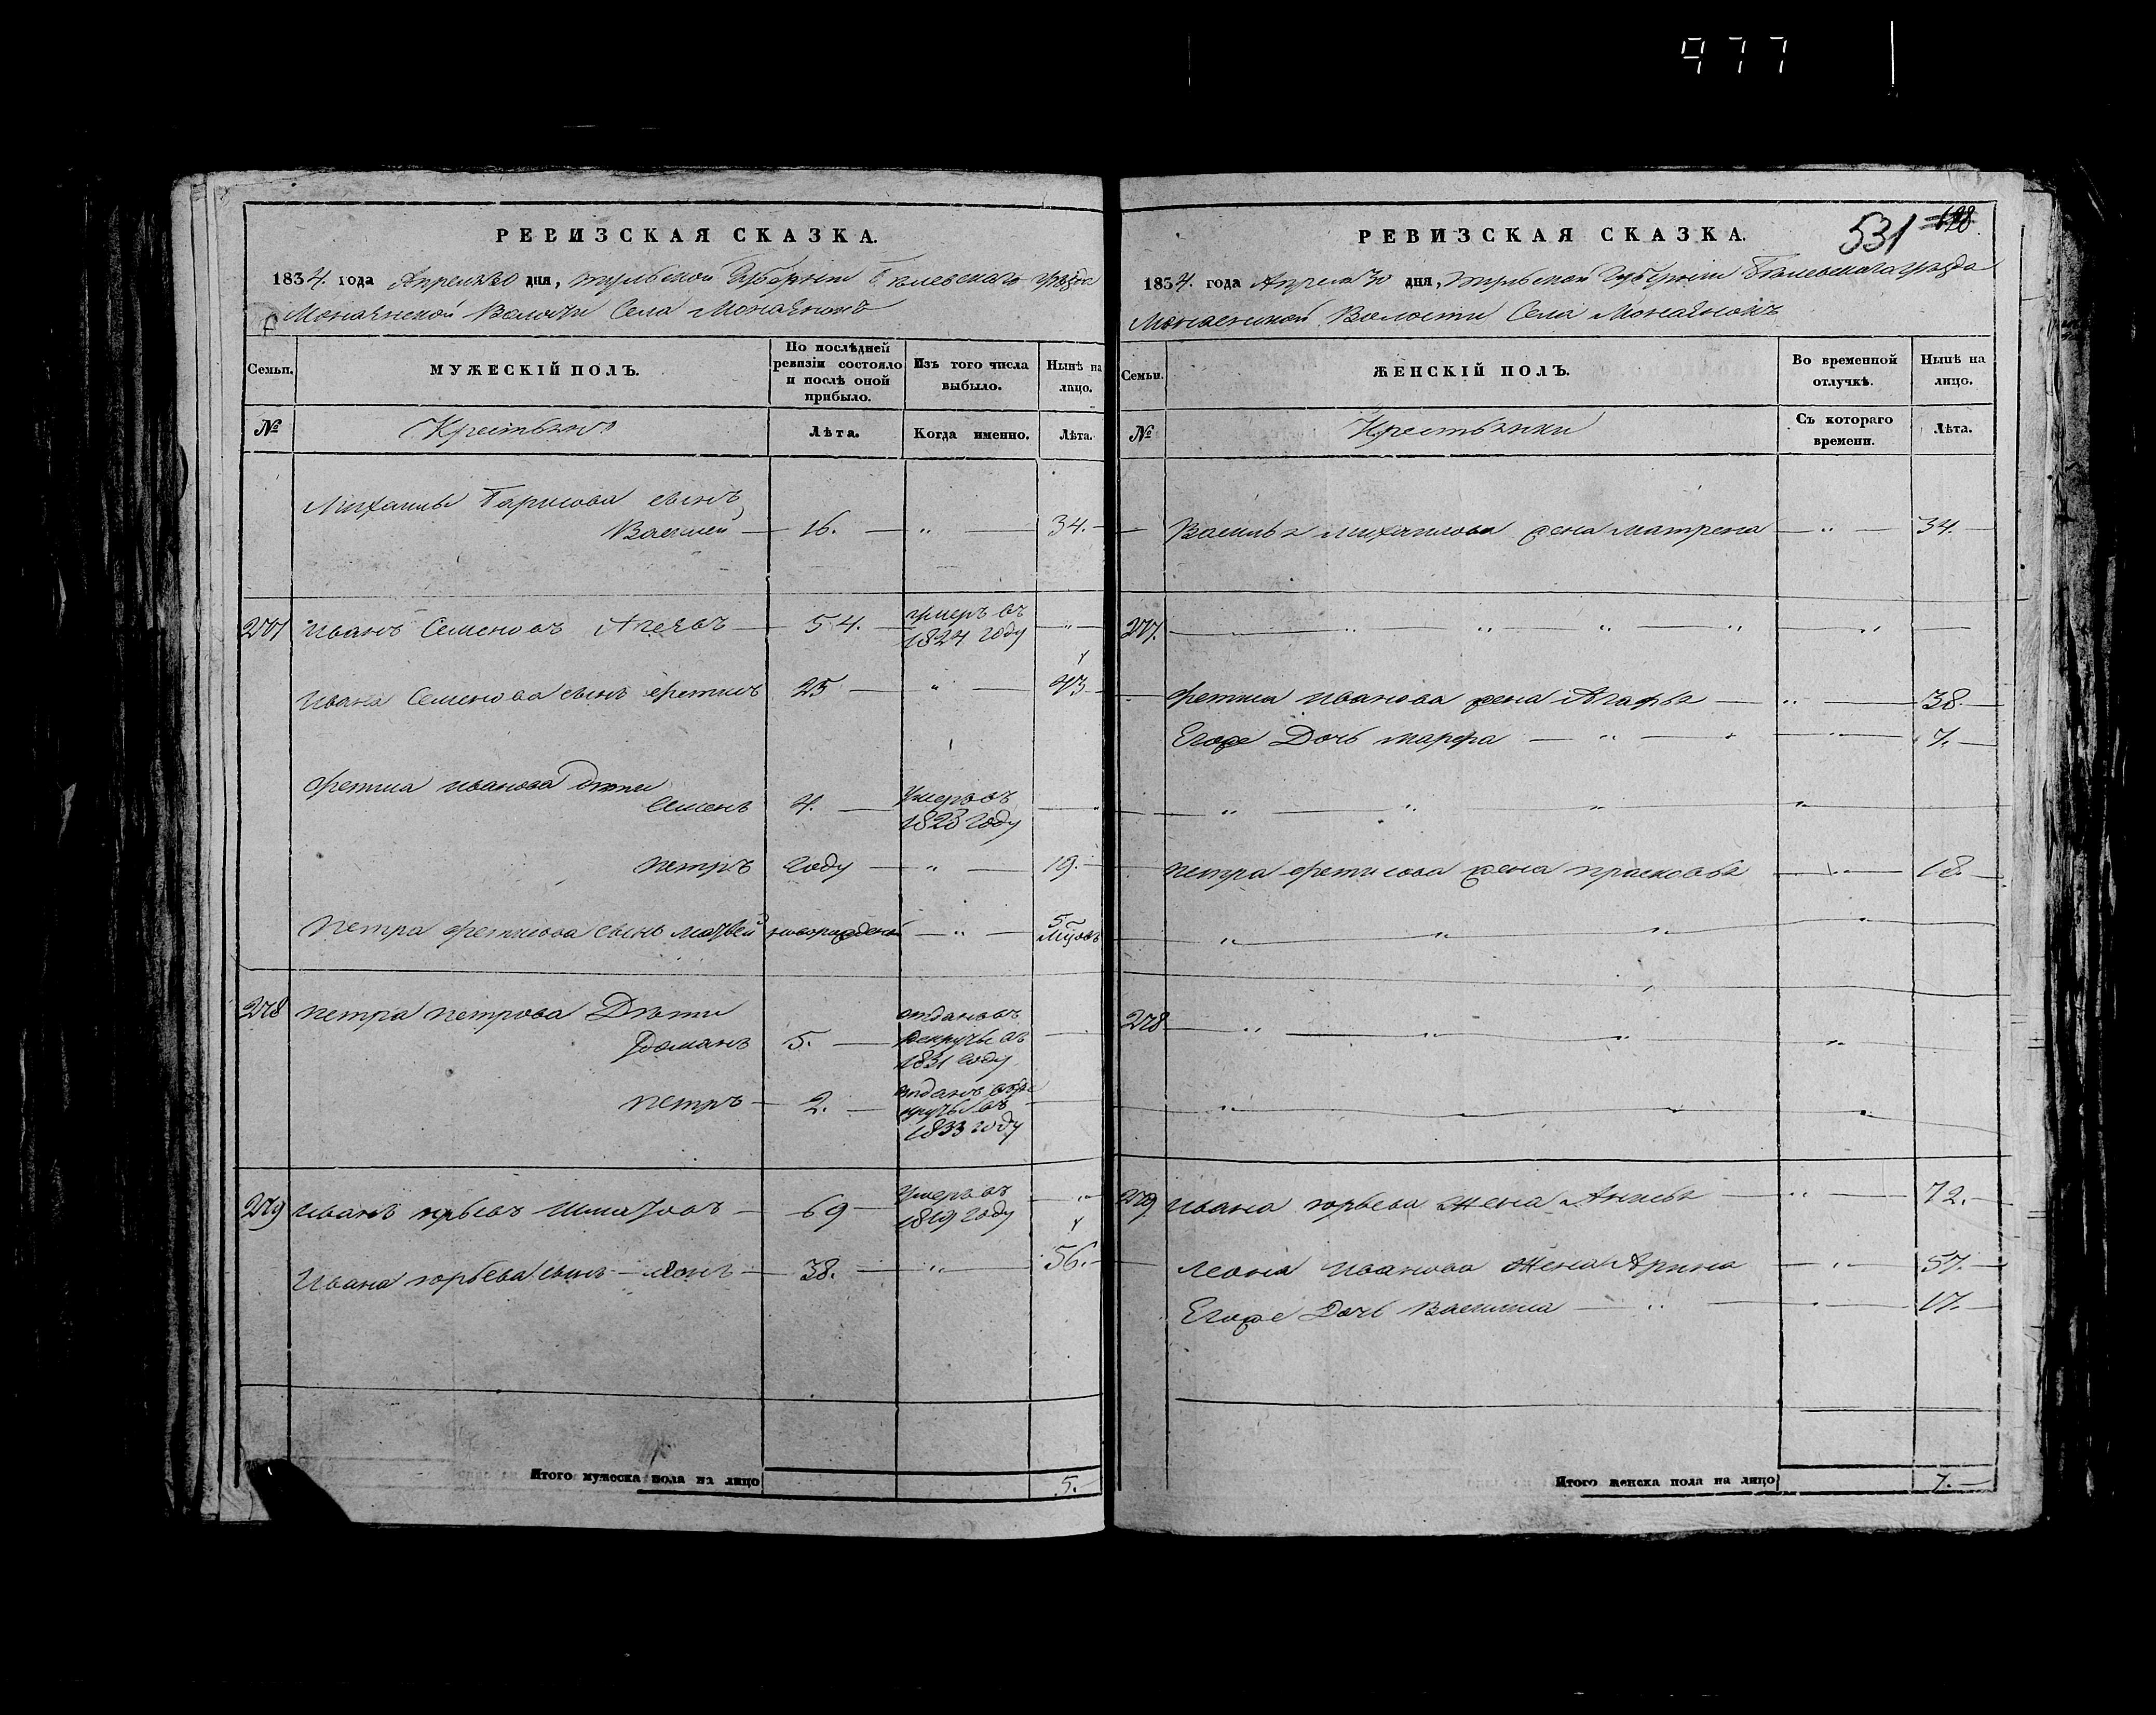 977
РЕВИЗСКАЯ СКАЗКА.
1834. года Апреля 30 дня, Тульской Губернии Белевскаго уезда
Монаенской Волости Села Монаенокъ
Семьи.
МУЖЕСКІЙ ПОЛЪ.
По послѣдней ревизіи состояло и послѣ оной прибыло.
Изъ того числа выбыло.
Нынѣ на лицо.
№
Крестьяне
Лѣта.
Когда именно.
Лѣта.
Михаилы Борисова сынъ
Василей — 16. — „ — 34.
277 Иванъ Семеновъ — 54. — умеръ въ 1824 году — „
Ивана Семенова сынъ Фетисъ 25 — „ — 43
Фетиса Иванова дѣти
Семенъ 4. — умеръ въ 1823 году — „
Петръ году — „ — 19.
Петра Фетисова сынъ Матвей новорожденъ — „ — 5 мѣсяцовъ
278 Петра Петрова Дѣти
Романъ 5. — отданъ въ рекруты въ 1831 году
Петръ — 2. — отданъ въ рекруты въ 1833 году
279 Иванъ Юрьевъ — 69 — умеръ въ 1819 году — „
Ивана Юрьева сынъ — Леонъ — 38. — „ — 56.
Итого мужеска пола на лицо 5.
531 128
РЕВИЗСКАЯ СКАЗКА.
1834. года Апреля 30 дня, Тульской Губернии Белевскаго уезда
Монаенской Волости Села Монаенокъ
Семьи.
ЖЕНСКІЙ ПОЛЪ.
Во временной отлучкѣ.
Нынѣ на лицо.
№
Крестьянки
Съ котораго времени.
Лѣта.
Василья Михаилова жена Матрена — „ — 34.
277. — „ „ „ „ — „ —
Фетиса Иванова жена Агафья — „ — 38.
Егоже Дочь Марфа — „ — „ — 7.
„ — „ — „ — „
Петра Фетисова жена Прасковья — „ — 18
„ — „ — „ — „
278 — „ — „ — „ — „
„ — „ — „ — „
279 Ивана Юрьева Жена Анисья — „ — 72.
Леона Иванова Жена Арина — „ — 57.
Егоже Дочь Василиса — „ — 17.
Итого женска пола на лицо 7.